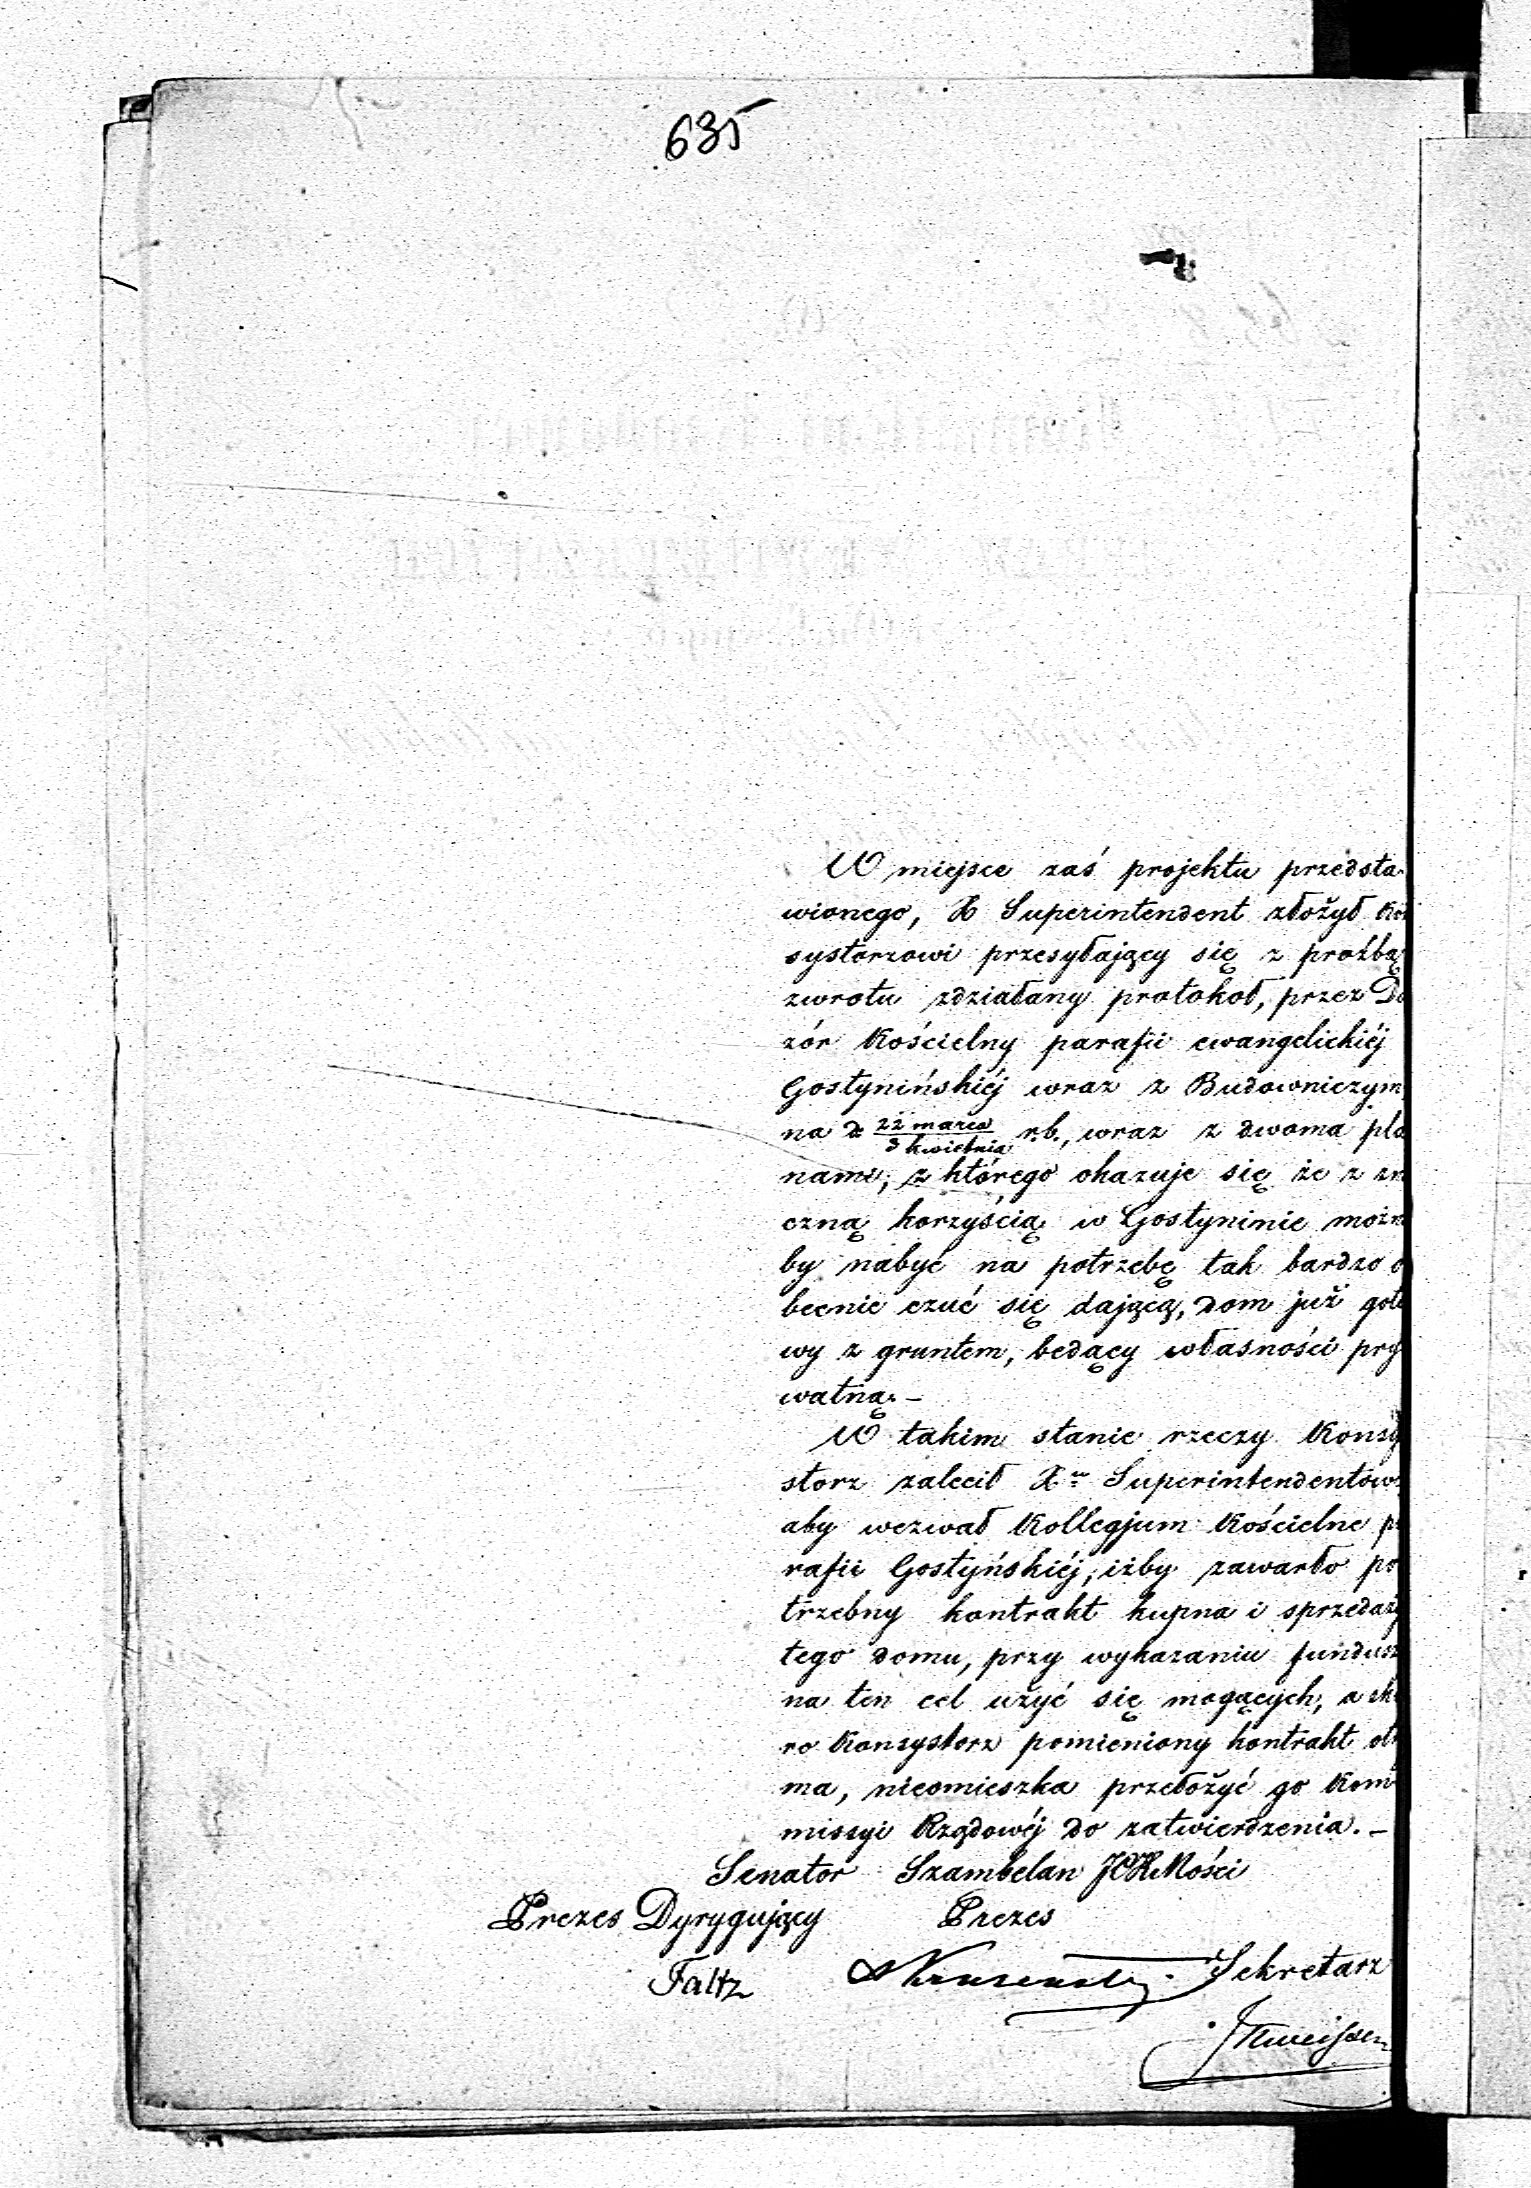 635
W miejsce zaś projektu przedsta-
wionego, X Superintendent złożył Kon
systorzowi przesyłający się z proźbą
zwrotu zdziałany protokoł, przez Do
zór Kościelny parafii ewangelickiéj
Gostynińskiéj wraz z Budowniczym
na d 22 marca / 3 kwietnia r.b., wraz z dwoma pla
nami, z którego okazuje się że z zn
czną korzyścią w Gostyninie możn
by nabyć na potrzebę tak bardzo o
becnie czuć się dającą, dom już goto
wy z gruntem, bedący własności pry
watną.–
W takim stanie rzeczy Konsy
storz zalecił X Superintendentow
aby wezwał Kollegjum Kościelne p
rafii Gostyńskiéj, iżby zawarło po
trzebny kontrakt kupna i sprzedaży
tego domu, przy wykazaniu fundusz
na ten cel użyć się mogących, a sko
ro Konsystorz pomieniony kontrakt otr
ma, nieomieszka przełożyć go Kom
missyi Rządowéj do zatwierdzenia.–
Senator Szambelan JCKMości
Prezes Dyrygujący Prezes
Faltz Sekretarz